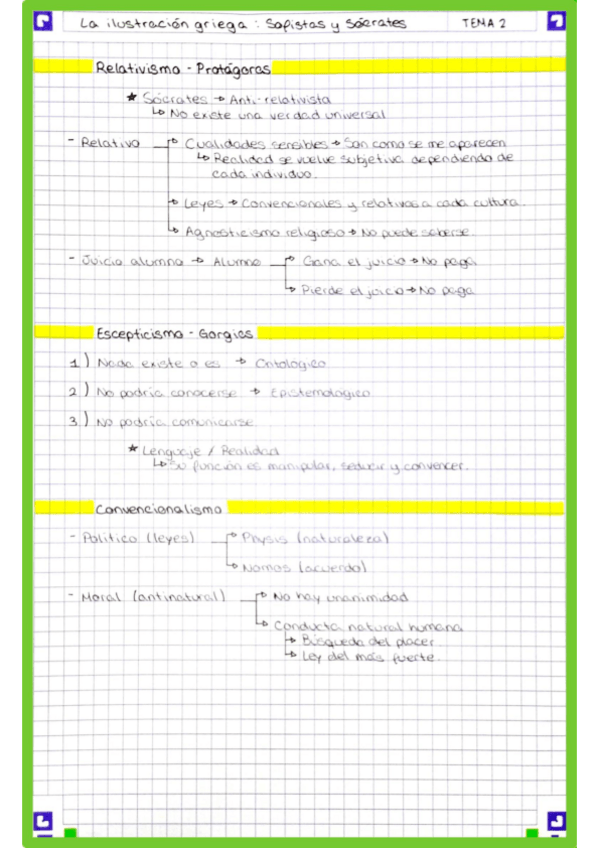 La ilustración griega : Sofistas y Sócrates TEMA 2
Relativismo - Protágoras
★ Sócrates → Anti-relativista
↳ No existe una verdad universal
- Relativo → Cualidades sensibles → Son como se me aparecen
↳ Realidad se vuelve subjetiva dependiendo de
cada individuo.
→ Leyes → Convencionales y relativas a cada cultura.
↳ Agnosticismo religioso → No puede saberse.
- Juicio alumno → Alumno → Gana el juicio → No paga
↳ Pierde el juicio → No paga
Escepticismo - Gorgias
1) Nada existe o es → Ontológico
2) No podría conocerse → Epistemológico
3) No podría comunicarse
★ Lenguaje / Realidad
↳ Su función es manipular, seducir y convencer.
Convencionalismo
- Político (leyes) → Physis (naturaleza)
↳ Nomos (acuerdo)
- Moral (antinatural) → No hay unanimidad
↳ Conducta natural humana
→ Búsqueda del placer
↳ Ley del más fuerte.